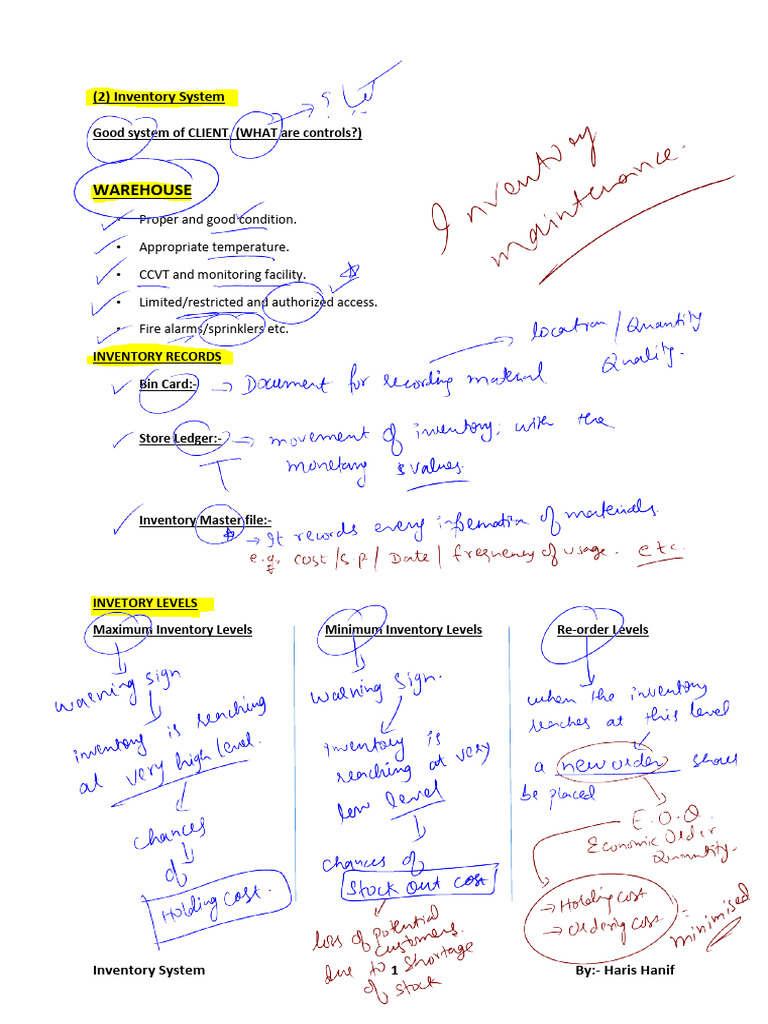 (2) Inventory System
؟ کیا
Good system of CLIENT. (WHAT are controls?)
Inventory
maintenance.
WAREHOUSE
• Proper and good condition.
• Appropriate temperature.
• CCVT and monitoring facility.
• Limited/restricted and authorized access.
• Fire alarms/sprinklers etc.
INVENTORY RECORDS
Bin Card:- → Document for recording material → location / Quantity
Quality.
Store Ledger:- → movement of inventory; with the
monetary $ values.
Inventory Master file:-
→ It records every information of materials.
e.g. cost / S.P / Date / frequency of usage. etc.
INVETORY LEVELS
Maximum Inventory Levels
warning sign
inventory is reaching
at very high level.
chances
of
Holding cost.
Minimum Inventory Levels
warning sign.
Inventory is
reaching at very
low level
chances of
Stock out cost
loss of potential
customers.
due to shortage
of stock
Re-order Levels
when the inventory
reaches at this level
a new order should
be placed
E.O.Q.
Economic Order
Quantity.
→ Holding cost
→ Ordering cost
minimised
Inventory System 1 By:- Haris Hanif